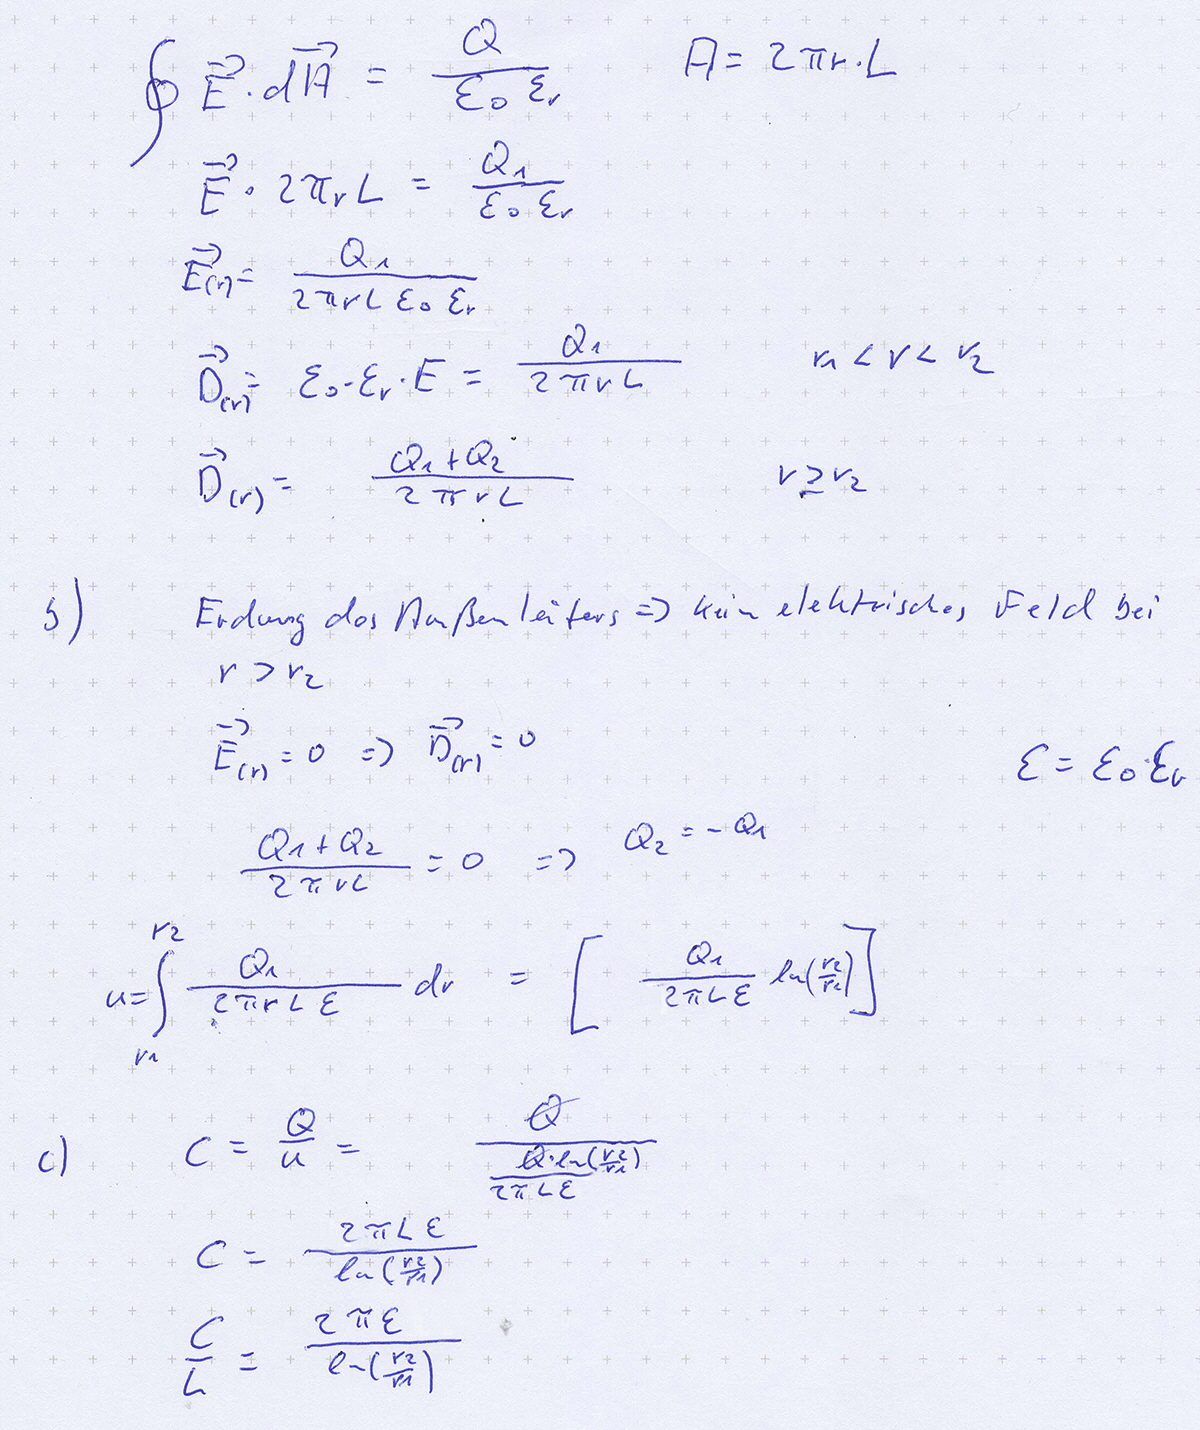 ∮ E⃗ · dA⃗ = Q / (ε₀ εᵣ)    A = 2πr·L
E⃗ · 2πrL = Q₁ / (ε₀ εᵣ)
E⃗(r) = Q₁ / (2πrL ε₀ εᵣ)
D⃗(r) = ε₀·εᵣ·E = Q₁ / (2πrL)    r₁ < r < r₂
D⃗(r) = (Q₁+Q₂) / (2πrL)    r ≥ r₂
b) Erdung des Außenleiters => kein elektrisches Feld bei
r > r₂
E⃗(r) = 0 => D⃗(r) = 0
ε = ε₀·εᵣ
(Q₁+Q₂) / (2πrL) = 0 => Q₂ = -Q₁
u = ∫_{r₁}^{r₂} Q₁ / (2πrLε) dr = [ Q₁ / (2πLε) ln(r₂/r₁) ]
c) C = Q/u = Q / (Q·ln(r₂/r₁) / (2πLε))
C = 2πLε / ln(r₂/r₁)
C/L = 2πε / ln(r₂/r₁)